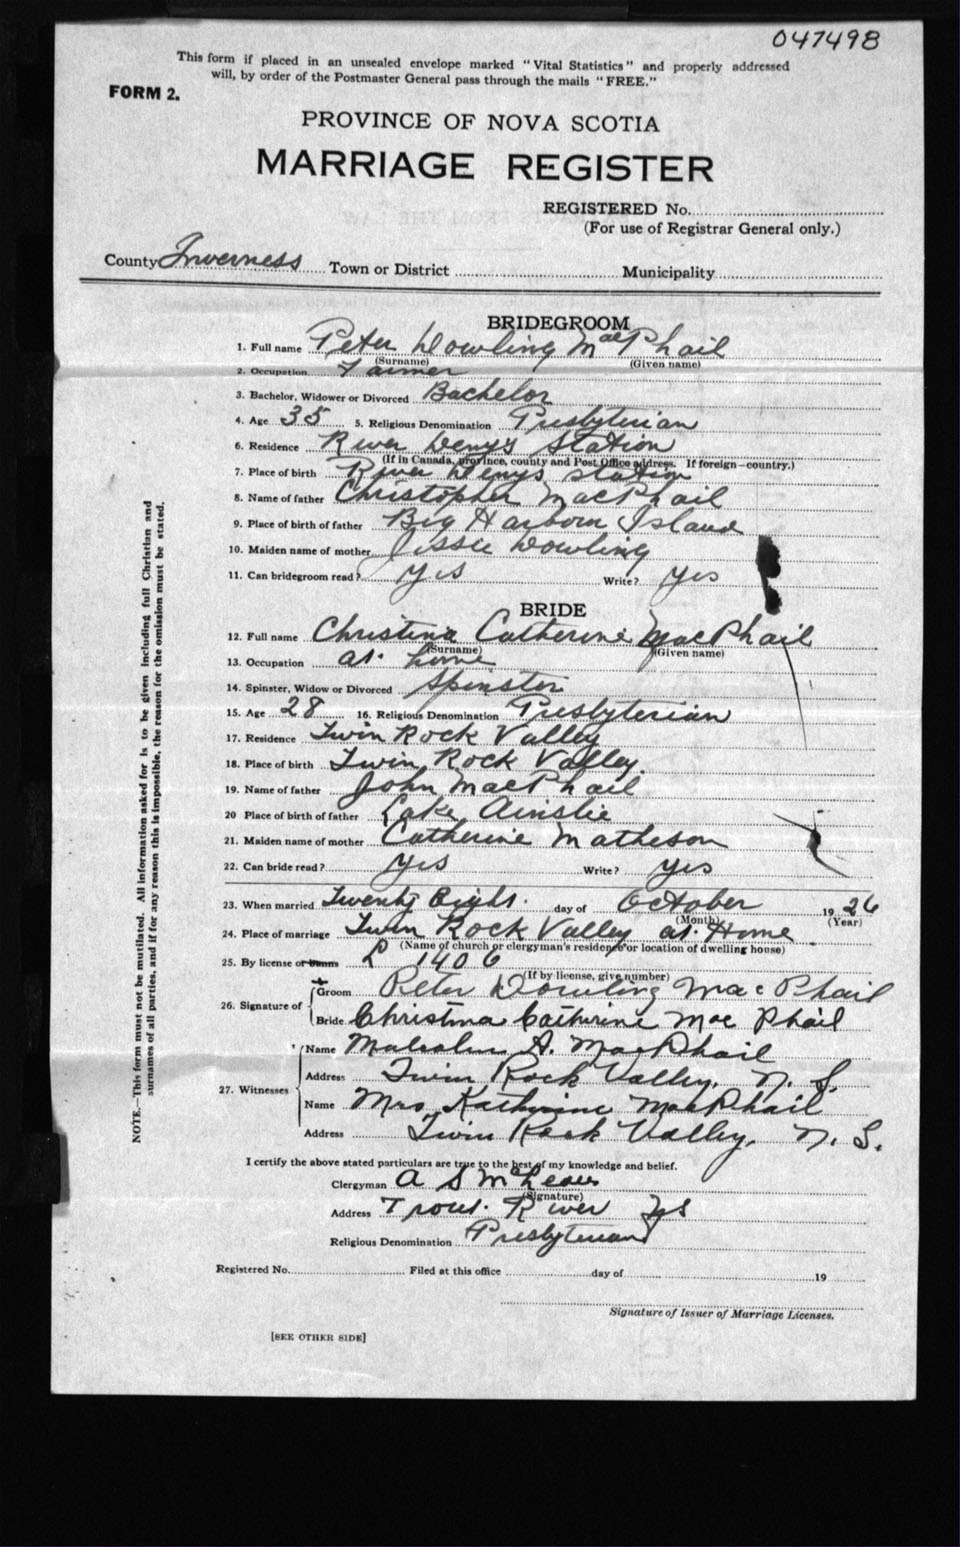 047498
This form if placed in an unsealed envelope marked "Vital Statistics" and properly addressed
will, by order of the Postmaster General pass through the mails "FREE."
FORM 2.
PROVINCE OF NOVA SCOTIA
MARRIAGE REGISTER
REGISTERED No.
(For use of Registrar General only.)
County Inverness Town or District Municipality
BRIDEGROOM
1. Full name Peter Dowling MacPhail
(Surname) (Given name)
2. Occupation Farmer
3. Bachelor, Widower or Divorced Bachelor
4. Age 35 5. Religious Denomination Presbyterian
6. Residence River Denys Station
(If in Canada, province, county and Post Office address. If foreign-country.)
7. Place of birth River Denys Station
8. Name of father Christopher MacPhail
9. Place of birth of father Big Harbour Island
10. Maiden name of mother Jessie Dowling
11. Can bridegroom read? yes Write? yes
BRIDE
12. Full name Christina Catherine MacPhail
(Surname) (Given name)
13. Occupation at home
14. Spinster, Widow or Divorced Spinster
15. Age 28 16. Religious Denomination Presbyterian
17. Residence Twin Rock Valley
18. Place of birth Twin Rock Valley.
19. Name of father John MacPhail
20 Place of birth of father Lake Ainslie
21. Maiden name of mother Catherine Matheson
22. Can bride read? yes Write? yes
23. When married Twenty Eight. day of October 1926
(Month) (Year)
24. Place of marriage Twin Rock Valley at Home
(Name of church or clergyman's residence or location of dwelling house)
25. By license or banns L 1406
(If by license, give number)
26. Signature of Groom Peter Dowling MacPhail
Bride Christina Catherine MacPhail
27. Witnesses Name Malcolm A. MacPhail
Address Twin Rock Valley, N. S.
Name Mrs Katherine MacPhail
Address Twin Rock Valley, N. S.
I certify the above stated particulars are true to the best of my knowledge and belief.
Clergyman A S McLean
(Signature)
Address Trout River
Religious Denomination Presbyterian
Registered No. Filed at this office day of 19
Signature of Issuer of Marriage Licenses.
[SEE OTHER SIDE]
NOTE.—This form must not be mutilated. All information asked for is to be given including full Christian and
surnames of all parties, and if for any reason this is impossible, the reason for the omission must be stated.